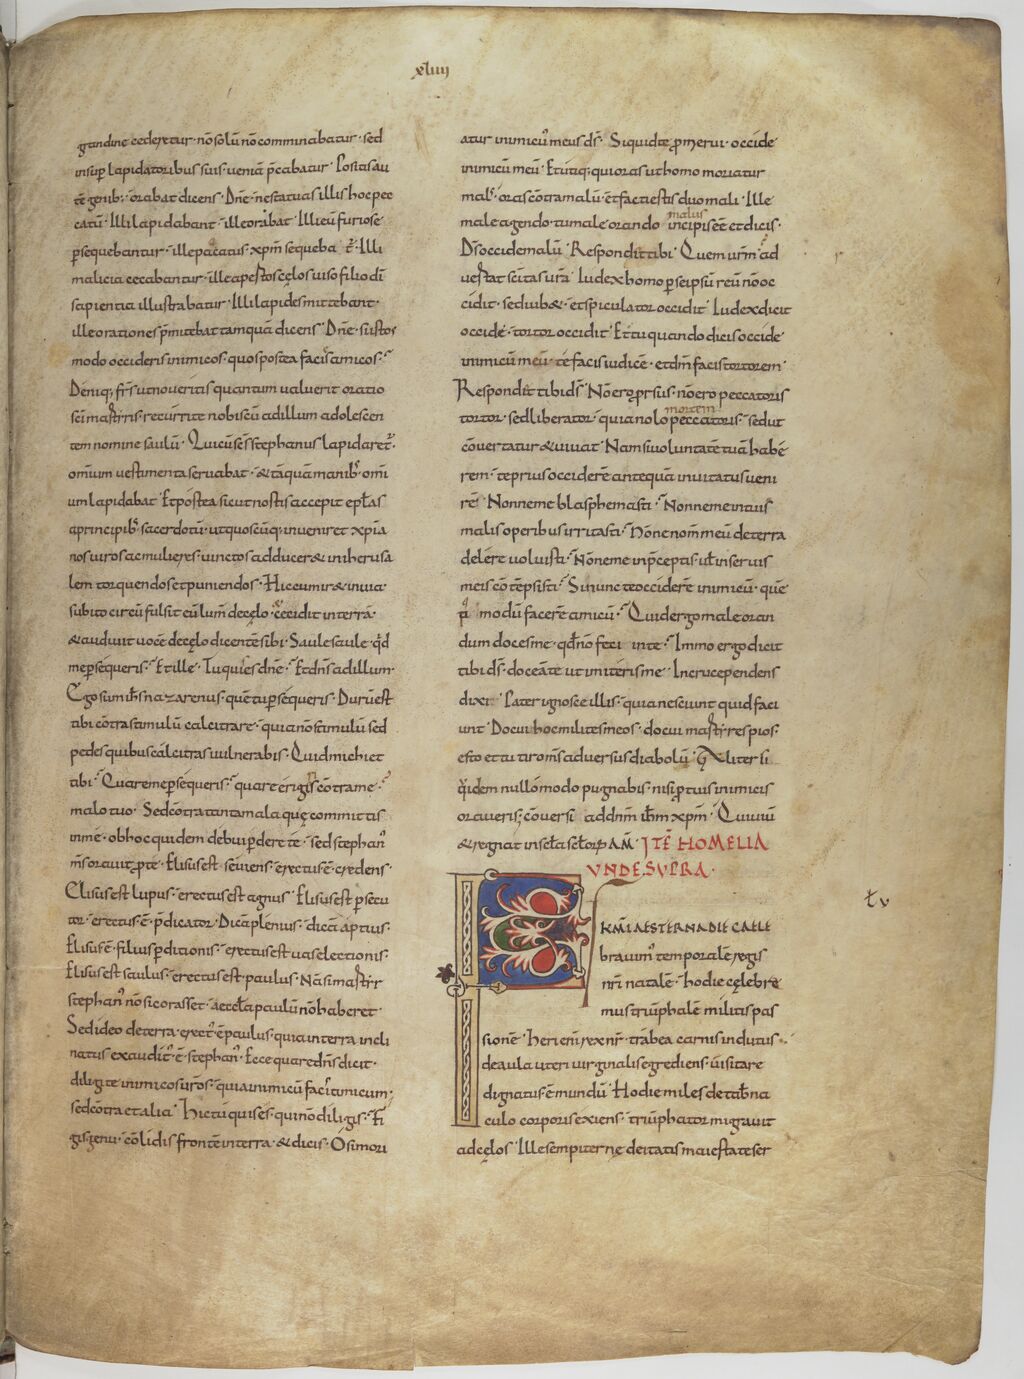 xliiii
grandine cederetur· nō solū nō comminabatur· sed
insup̄ lapidatoribus suis· ueniā p̄cabatur· Positis au
tē genib;· orabat dicens· Dn̄e· ne statuas illis hoc pec
catū· Illi lapidabant· ille orabat· Illi eū furiose
p̄sequebantur· ille pacatus· xp̄m sequebatr̄· Illi
malicia cecabantur· ille aptos cęlos uiso filio dī
sapientia illustrabatur· Illi lapides mittebant·
ille orationes p̄mitebat tamquā dicens· Dn̄e· si istos
modo occideris inimicos· quos postea facis amicos·
Deniq; frs̄ ut noueritis quantum ualuerit oratio
sc̄i martiris· recurrite nobiscū ad illum adolescen
tem nomine saulū· Qui cū sc̄s stephanus lapidaret·
omnium uestimenta seruabat· & tāquā manib; omī
um lapidabat· Et postea sicut nostis accepit epl̄as
a principib; sacerdotū· ut quoscūq; inueniret xp̄ia
nos uiros ac mulieres· uinctos adducer& in iherusa
lem torquendos et puniendos· Hic eum ir& in uia·
subito circūfulsit eū lum̄ de cęlo· Cecidit in terrā·
& audiuit uocē de cęlo dicentē sibi· Saule saule· qd̄
me p̄sequeris· Et ille· Tu quis es dn̄e· Et dn̄s ad illum·
Ego sum ih̄s nazarenus· quē tu p̄sequeris· Durū est
tibi cōtra stimulū calcitrare· quia nō stimulū sed
pedes quibus calcitras uulnerabis· Quid mihi et
tibi· Quare me p̄sequeris· quare erigis cōtra me·
malo tuo· Sed cōtra tanta mala quę commitis
in me· ob hoc quidem debui p̄dere te· sed stephan;
ms̄ orauit p̄ te· Elisus est sęuiens· erectus ē credens·
Elisus est lupus· erectus est agnus· Elisus est p̄secu
tor· erectus ē p̄dicator· Dicā plenius· dicā aptius·
Elisus ē filius p̄ditionis· erectus est uas electionis·
Elisus est saulus· erectus est paulus· Nā si martir
stephan; nō sic orasset· aeccl̄a paulū nō haberet·
Sed ideo de terra erect; ē paulus· quia in terra incli
natus exaudit; ē stephan;· Ecce quare dn̄s dicit·
diligite inimicos uros̄· quia inimicū facit amicum·
sed cōtra et alia· Hic tu quis es· qui nō diligis· Fi
gis genu· cōlidis frontē in terra· & dicis· O si mori
atur inimicus meus ds̄· Si quid te p̄merui· occide
inimicū meū· Et utiq; qui oras ut homo moriatur
mal;· oras cōtra malū· et facti estis duo mali· Ille
male agendo· tu male orando
malus
incipis eē et dicis·
Ds̄ occide malū· Respondit tibi· Quem urm̄· ad
uersat scītas ura· Iudex homo p̄ se ipsū reū nō oc
cidit· sed iub&· et spiculator occidit· Iudex dicit
occide· tortor occidit· Et tu quando dicis occide
inimicū meū· te facis iudicē· et dm̄ facis tortorem·
Respondit tibi ds̄· Nō ero p̄rsus· nō ero peccatoris
mortem
tortor· sed liberator· quia nolo peccatoris· sed ut
cōuertatur & uiuat· Nam si uoluntatē tuā habē
rem· te prius occiderē antequā inuitatus ueni
rēs· Nonne me blasphemasti· Nonne me in tuis
malis operibus irritasti· Nōne nom̄ meū de terra
delere uoluisti· Nōne me in p̄ceptis· ul̄ in seruis
meis cōtēpsisti· Si nunc te occiderē inimicū· quē
post modū facerē amicū· Quid ergo male oran
dum doces me· qd̄ nō feci in te· Immo ergo dicit
tibi ds̄· doceā te ut imiteris me· In cruce pendens
dixi· Pater ignosce illis· quia nesciunt quid faci
unt· Docui hoc milites meos· docui martires pios·
esto et tu tiro ms̄ aduersus diabolū· Aliter si
quidem nullo modo pugnabis· nisi p̄ tuis inimicis
oraueris· cōuersi ad dn̄m ih̄m xp̄m· Qui uiuit
& regnat in scl̄a scl̄orū AM̄· ITĒ HOMELIA
UNDE SUPRA·
ł v
FR̄ KMI AESTERNA DIE CAELE
brauim; temporalē regis
nr̄i natalē· hodie cęlebrē
mus triūphalē militis pas
sionē· Heri enī rex nr̄· trabea carnis indutus·
de aula uteri uirginalis egrediens· uisitare
dignatus ē mundū· Hodie miles de tab̄na
culo corporis exiens· triūphator migrauit
ad cęlos· Ille sempiternę deitatis maiestate ser